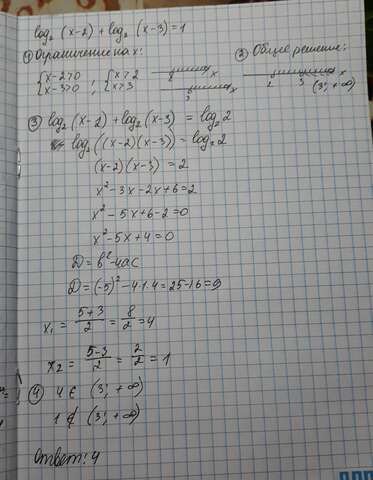 log₂ (x-2) + log₂ (x-3) = 1
① Ограничение на x:
{x-2>0 ; {x>2
{x-3>0 {x>3
2 x
3 x
② Общее решение:
2 3 x
(3; +∞)
③ log₂(x-2) + log₂(x-3) = log₂2
log₂((x-2)(x-3)) = log₂2
(x-2)(x-3) = 2
x²-3x-2x+6=2
x²-5x+6-2=0
x²-5x+4=0
D=b²-4ac
D=(-5)²-4·1·4=25-16=9
x₁ = (5+3)/2 = 8/2 = 4
x₂ = (5-3)/2 = 2/2 = 1
④ 4 ∈ (3; +∞)
1 ∉ (3; +∞)
Ответ: 4